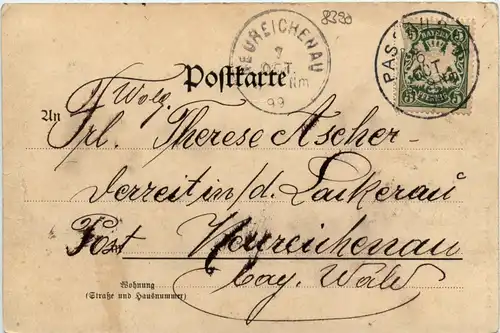 8390
NEUREICHENAU
7
OCT
Nm
99
PASSAU
BAYERN
5 5
5 PFENNIG 5
Postkarte
An
Wolg.
Frl. Therese Ascher-
derzeit in/d. Lackerau
Post Neureichenau
bay. Wald
Wohnung
(Straße und Hausnummer)